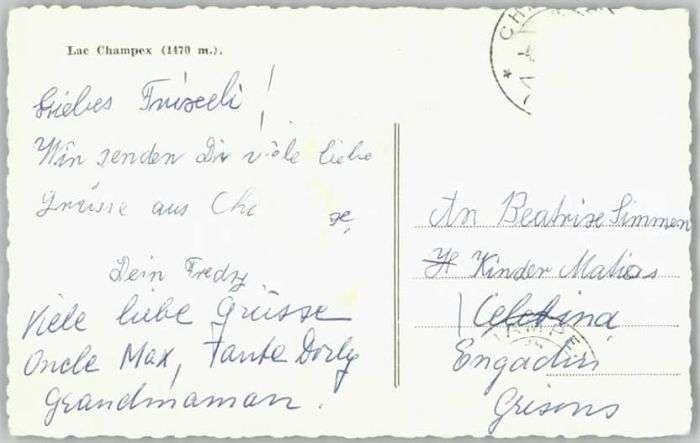 Lac Champex (1470 m.).
Liebes Friseeli!
Wir senden Dir viele liebe
Grüsse aus
Dein Fredy
Viele liebe Grüsse
Oncle Max, Tante Dorly
Grandmaman.
An Beatrise Simmen
Kinder
Celerina
Engadin
Grisons